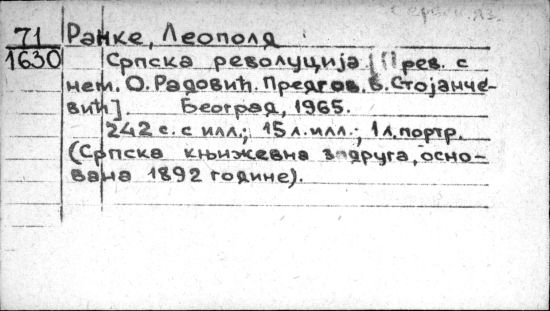 71
1630
Ранке, Леополд
Српска револуција. [Прев. с
нем. О. Радовић. Предгов. В. Стојанче-
вић]. Београд, 1965.
242 с. с илл.; 15 л. илл.; 1 л. портр.
(Српска књижевна задруга, осно-
вана 1892 године).